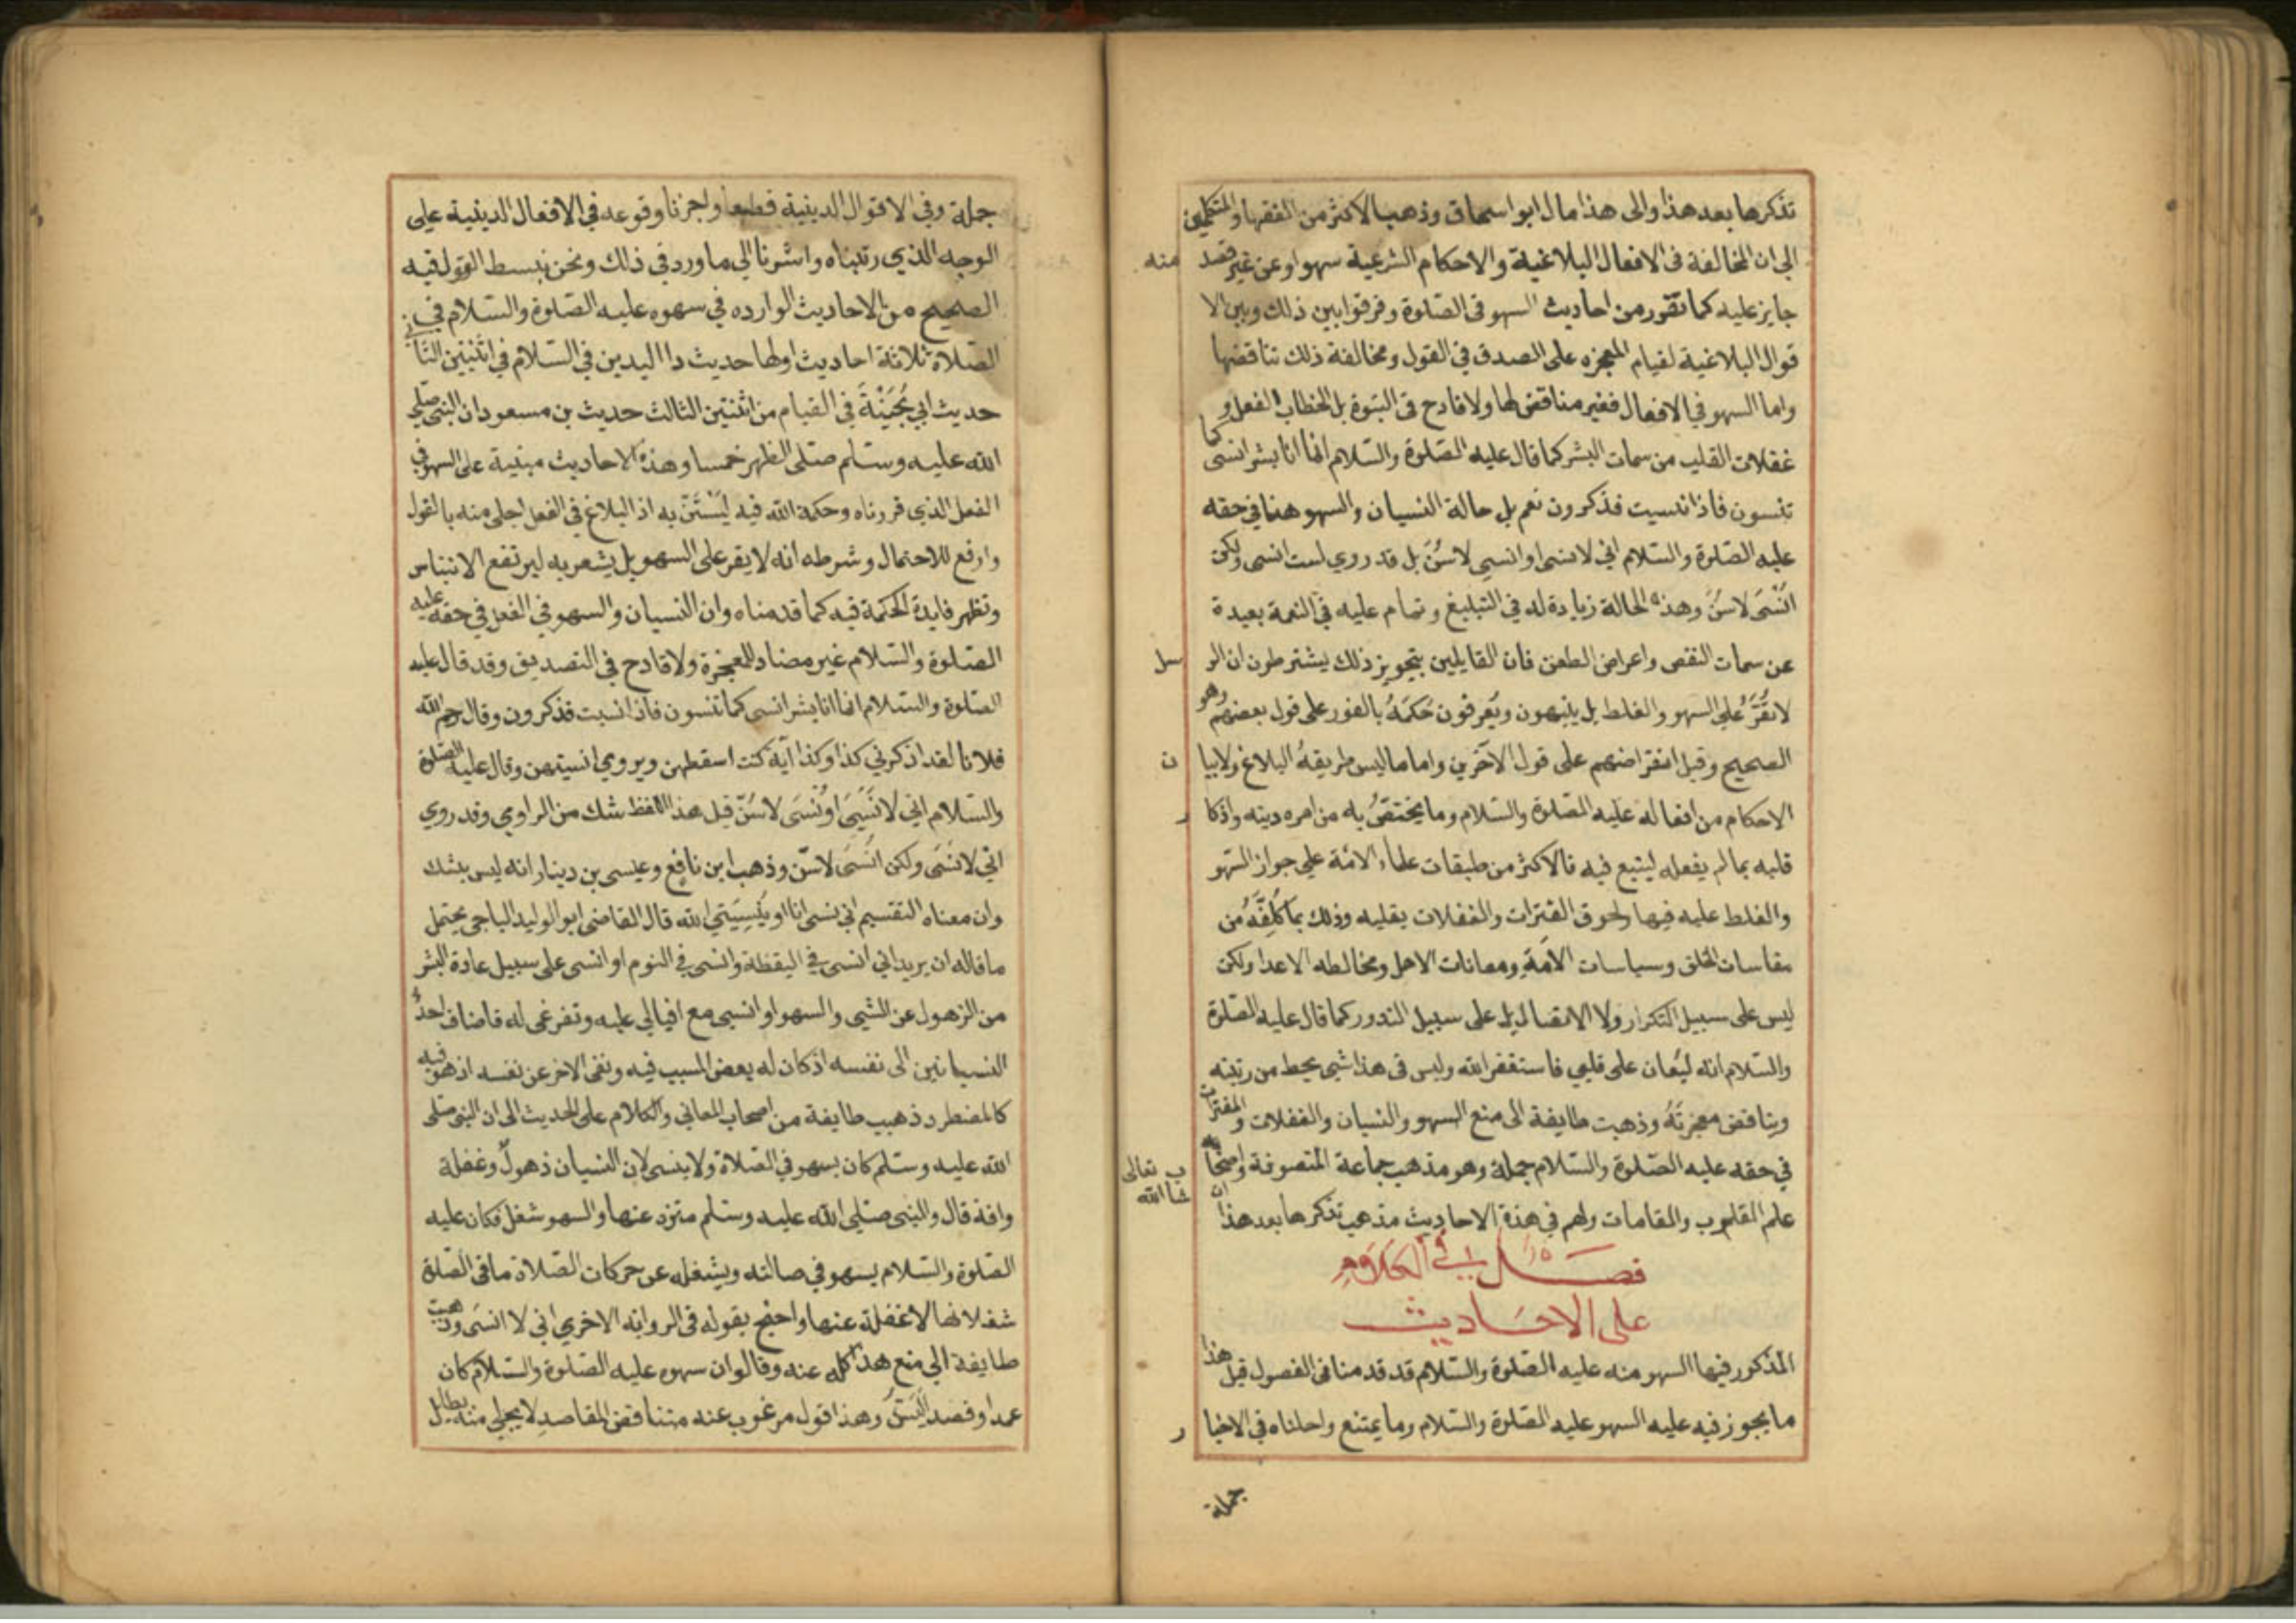 تذكرها بعد هذا والى هذا مال ابو اسحاق وذهب الاكثر من الفقها والمتكلمين
الى ان المخالفة فى الافعال البلاغية والاحكام الشرعية سهوا وعن غير قصد منه
جايز عليه كما تقرر من احاديث السهو فى الصلوة وفرقوا بين ذلك وبين الا
قوال البلاغية لقيام المعجزه على الصدق فى القول ومخالفة ذلك تناقضها
واما السهو فى الافعال فغير مناقض لها ولا قادح فى النبوة بل الخطاب الفعل و
غفلات القلب من سمات البشر كما قال عليه الصلوة والسلام انما انا بشر انسى كما
تنسون فاذا نسيت فذكرون نعم بل حالة النسيان والسهو هنا فى حقه
عليه الصلوة والسلام انى لا نسى او انسى لاسُنّ بل قد روي لست انسى ولكن
انَسَّى لاسُنّ وهذه الحالة زيادة له فى التبليغ وتمام عليه فى النعمة بعيدة
عن سمات النقص واعراض الطعن فان القايلين بتجويز ذلك يشترطون ان الر سل
لا تقَرُّ على السهو والغلط بل ينبهون ويُعرفون حُكمَهُ بالفور على قول بعضهم وهو
الصحيح وقبل انقراضهم على قول الآخرين واما ما ليس طريقهُ البلاغ ولا بيا ن
الاحكام من افعاله عليه الصلوة والسلام وما يختصُّ به من امره دينه واذكا ر
قلبه بما لم يفعله ليتبع فيه فالاكثر من طبقات علماء الامة على جواز السهو
والغلط عليه فيها ولحوق الفترات والغفلات بقلبه وذلك بما كُلِّفَهُ من
مقاسات الخلق وسياسات الاُمَّةِ ومعانات الاهل ومخالطه الاعدا ولكن
ليس على سبيل التكرار ولا الاتصال بل على سبيل الندور كما قال عليه الصلوة
والسلام انه ليُغان على قلبي فاستغفر الله وليس فى هذا شى يحط من رتبته
ويناقض معجزتَهُ وذهبت طايفة الى منع السهو والنسيان والغفلات والفترات
في حقه عليه الصلوة والسلام جملة وهو مذهب جماعة المتصوفة واصحاب
علم القلوب والمقامات ولهم فى هذة الاحاديث مذهب نذكرها بعد هذا ان شا الله تعالى
فصل فى الكلام
على الاحاديث
المذكور فيها السهو منه عليه الصلوة والسلام قد قدمنا فى الفصول قبل هذا
ما يجوز فيه عليه السهو عليه الصلوة والسلام وما يمتنع واحلناه فى الاخبا ر
جملة
جملة وفى الاقوال الدينية قطعا واجزنا وقوعه فى الافعال الدينية على
الوجه الذي رتبناه واشرنا الى ما ورد فى ذلك ونحن نبسط القول فيه
الصحيح من الاحاديث الوارده في سهوه عليه الصلوة والسلام في
الصلاة ثلاثة احاديث اولها حديث ذا اليدين في السلام في اثنتين الثانى
حديث ابي بُحَيْنَةَ في القيام من اثنتين الثالث حديث بن مسعود ان النبى صلى
الله عليه وسلم صلى الظهر خمسا وهذه الاحاديث مبنية على السهو فى
الفعل الذي قررناه وحكمة الله فيه ليُسْتَنّ به اذ البلاغ فى الفعل اجلى منه بالقول
وارفع للاحتمال وشرطه انه لا يقر على السهو بل يشعر به ليرتفع الالتباس
وتظهر فايدة الحكمة فيه كما قدمناه وان النسيان والسهو في الفعل في حقه عليه
الصلوة والسلام غير مضاد للمعجزة ولا قادح في التصديق وقد قال عليه
الصلوة والسلام انما انا بشر انسى كما تنسون فاذا نسيت فذكرون وقال رحم الله
فلانا لقد اذكرني كذا وكذا آية كنت اسقطهن ويروي انسيتهن وقال عليه الصلوة
والسلام انى لا نسى او نُنسى لاسُنّ قيل هذا اللفظ شك من الراوي وقد روي
انى لا نسى ولكن انَسَّى لاسّن وذهب ابن نافع وعيسى بن دينار انه ليس بشك
وان معناه التقسيم انى نسى انا او يُنْسِينى الله قال القاضى ابو الوليد الباجى يحتمل
ما قاله ان يريد اني انسى فى اليقظة وانسى فى النوم او انسى على سبيل عادة البشر
من الزهول عن الشى والسهو او انسى مع اقبالي عليه وتفرغى له فاضاف احد
النسيانين الى نفسه اذ كان له بعض السبب فيه ونفى الاخر عن نفسه اذ هو فيه
كالمضطر وذهبب طايفة من اصحاب المعاني والكلام على الحديث الى ان النبى صلى
الله عليه وسلم كان يسهو في الصلاة ولا ينسى لان النسيان ذهولٌ وغفلة
وافة قال والنبى صلى الله عليه وسلم منزه عنها والسهو شغل فكان عليه
الصلوة والسلام يسهو في صالته ويشغله عن حركات الصلاة ما فى الصلوة
شغلا نها لا غفلة عنها واحتج بقوله فى الروايه الاخري اني لا انسَى وذهبت
طايفة الي منع هذا كله عنه وقالوا ان سهوه عليه الصلوة والسلام كان
عمدا وقصد اليَسُنّ وهذا قول مرغوب عنه متناقض المقاصدِ لا يحلى منه بطايل